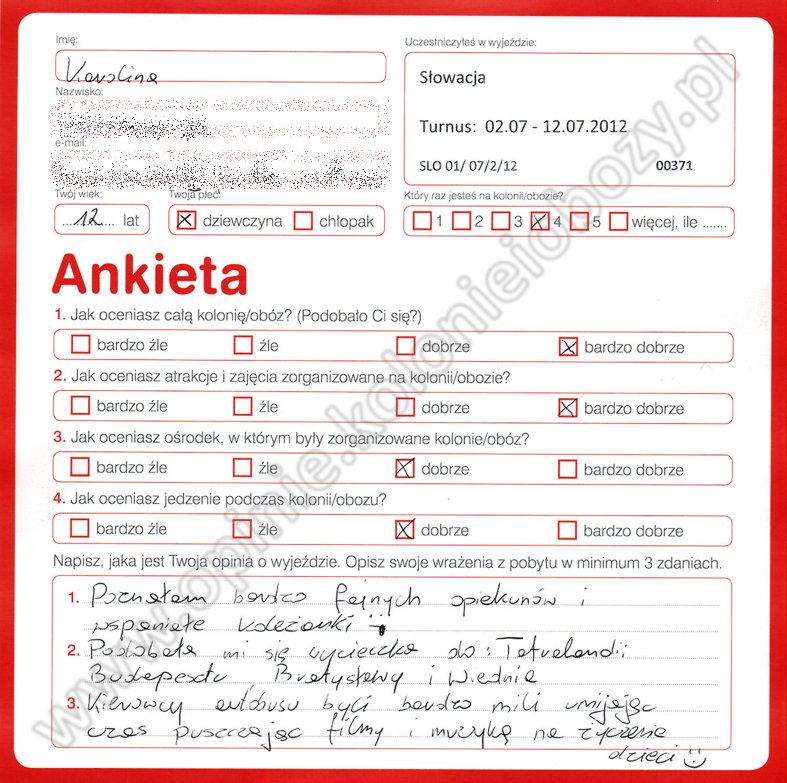 Imię:
Karolina
Uczestniczyłeś w wyjeździe:
Słowacja
Turnus: 02.07 - 12.07.2012
SLO 01/ 07/2/12 00371
Nazwisko:
e-mail:
Twój wiek:
12 lat
Twoja płeć:
dziewczyna chłopak
Który raz jesteś na kolonii/obozie?
1 2 3 4 5 więcej, ile .......
Ankieta
1. Jak oceniasz całą kolonię/obóz? (Podobało Ci się?)
bardzo źle źle dobrze bardzo dobrze
2. Jak oceniasz atrakcje i zajęcia zorganizowane na kolonii/obozie?
bardzo źle źle dobrze bardzo dobrze
3. Jak oceniasz ośrodek, w którym były zorganizowane kolonie/obóz?
bardzo źle źle dobrze bardzo dobrze
4. Jak oceniasz jedzenie podczas kolonii/obozu?
bardzo źle źle dobrze bardzo dobrze
Napisz, jaka jest Twoja opinia o wyjeździe. Opisz swoje wrażenia z pobytu w minimum 3 zdaniach.
1. Poznałam bardzo fajnych opiekunów i
wspaniałe koleżanki
2. Podobała mi się wycieczka do: Tatralandii
Budapesztu, Bratysławy i Wiednia
3. Kierowcy autobusu byli bardzo mili umilając
czas puszczając filmy i muzykę na życzenie
dzieci :)
www.opinie.kolonieiobozy.pl